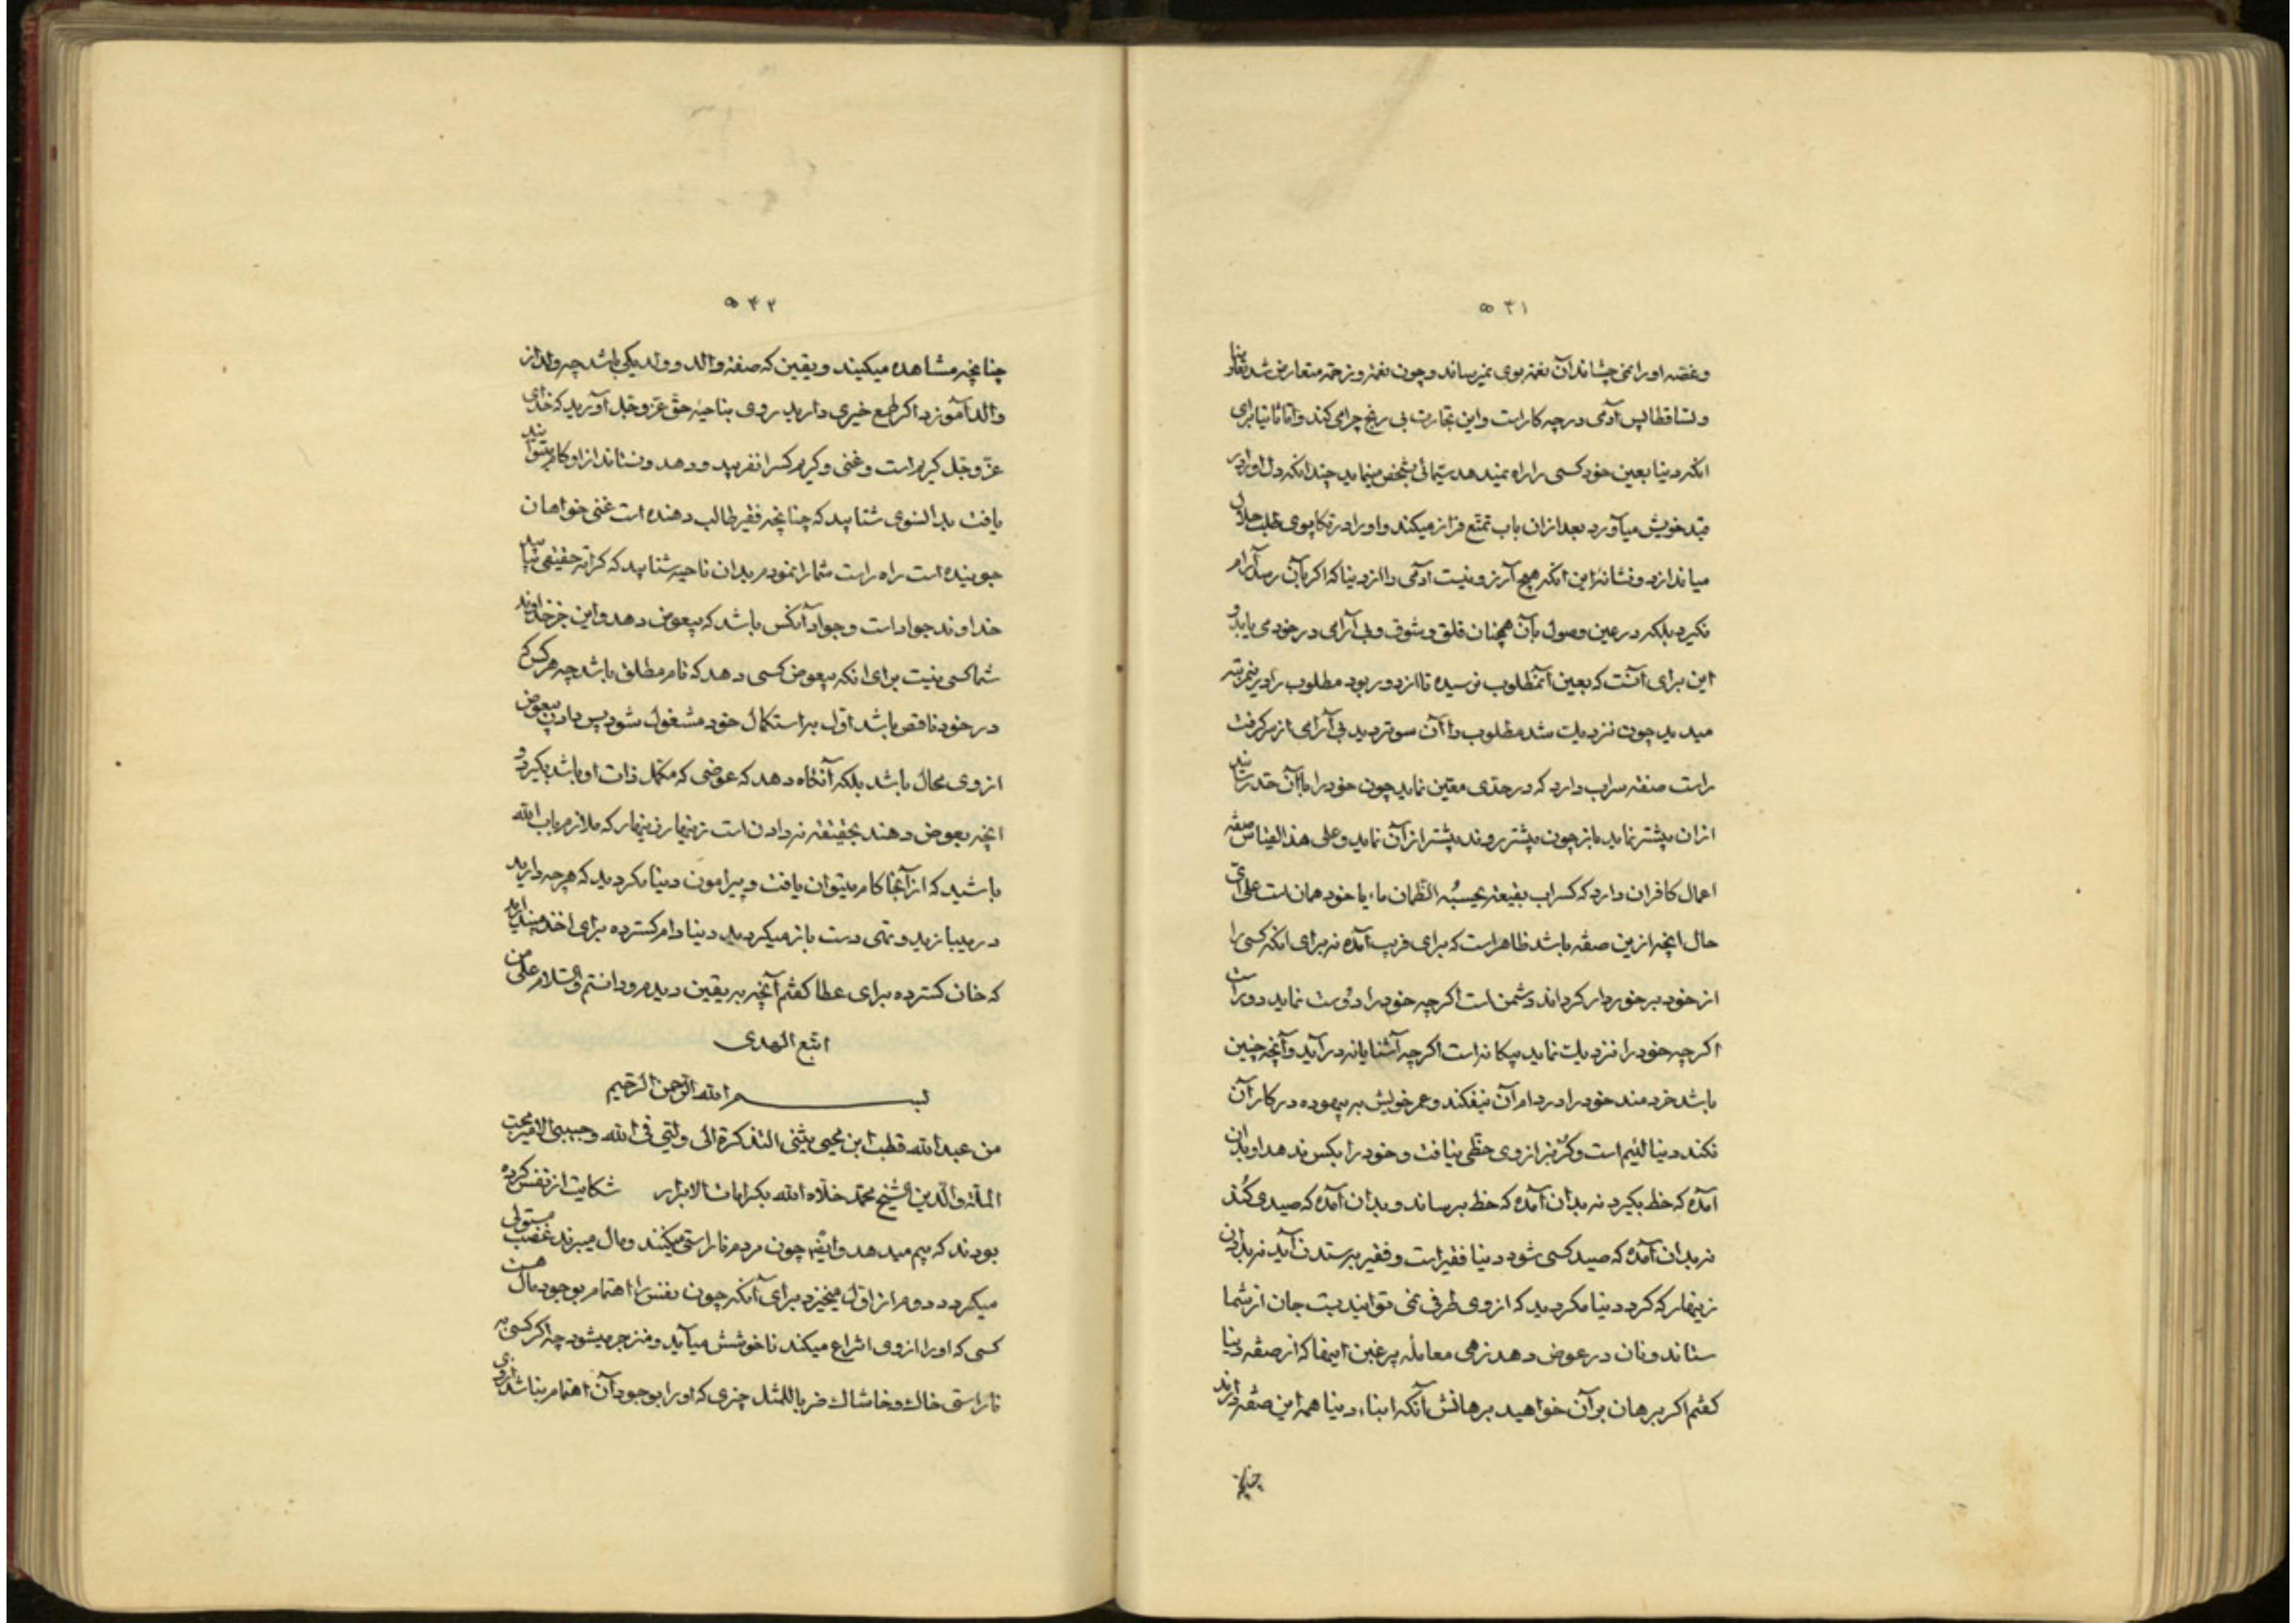 ۵۴۱
و غصه او را نمی چشاند آن نغمه بوی نمیرساند و چون نغمه و زحمة متعارض شد
و تساقطا پس آدمی در چه کار است و این تجارت بی ریح چرا می کند و اما ثانیا برای
انکه دنیا بعین خود کسی را راه نمیدهد شخص مینماید چندانکه دل او را در
قید خویش میآورد بعد ازان باب تمتع فراز میکند و او را در تکاپوی طلب
میاندازد و نشانهٔ این انکه هیچ آرزو نیست آدمی را از دنیا که اکر بآن رسد آرام
نکیرد بلکه در عین وصول بآن همچنان قلق و شوق و بی آرامی در خود می یابد و
این برای آنست که بعین آن مطلوب نرسیده تا از دور بود مطلوب را در
میدید چون نزدیک شد مطلوب را آن سوتر دید بی آرامی از سر کرفت
راست صفة سراب دارد که در حدی معین نماید چون خود را بآن حد رسانید
ازان پیشتر نماید باز چون پیشتر روند پیشتر ازآن نماید و علی هذا القیاس صفة
اعمال کافران دارد که کسراب بقیعة یحسبه الظمان ماء یا خود همان است علی ای
حال انچه ازین صفة باشد ظاهر است که برای فریب آمده نه برای انکه کسی را
از خود برخوردار کرداند دشمن است اکرچه خود را دوست نماید دور است
اکرچه خود را نزدیک نماید بیکانه است اکرچه آشنایانه درآید و آنچه چنین
باشد خردمند خود را در دام آن نیفکند و عمر خویش به بیهوده در کار آن
نکند دنیا لئیم است و کس از وی حظی نیافت و خود را بکس ندهد او بدان
آمده که حظ بکیرد نه بدان آمده که حظ برساند و بدان آمده که صیدی کند
نه بدان آمده که صید کسی شود دنیا فقیر است و فقیر بستدن آید نه بدادن
زینهار که کرد دنیا مکردید که از وی طرفی نمی توانید بست جان از شما
ستاند و نان در عوض دهد زهی معامله پر غبن اینها که از صفة دنیا
کفتم اکر برهان بر آن خواهید برهانش آنکه ابناء دنیا همه این صفة دارند
چنانچه
۵۴۲
چنانچه مشاهده میکنید و یقین که صفة والد و ولد یکی باشد چه ولد از
والد آموزد اکر طمع خیری دارید روی بناحیهٔ حق عز و جل آورید که خدای
عز و جل کریم است و غنی و کریم کسرا نفریبد و دهد و نستاند از او کام بتوانید
یافت بدانسوی شتابید که چنانچه فقیر طالب دهنده است غنی خواهان
جوینده است راه راست شما را نمودم بدان ناحیه شتابید که
خداوند جواد است و جواد آنکس باشد که بیعوض دهد و این جز خداوند
شما کسی نیست برای انکه بیعوض کسی دهد که تام مطلق باشد چه هرکس که
در خود ناقص باشد اول به استکمال خود مشغول شود پس دادن بیعوض
از وی محال باشد بلکه آنکاه دهد که عوضی که مکمل ذات او باشد بکیرد و
انچه بعوض دهند بحقیقة نه دادن است زینهار زینهار که ملازم باب الله
باشید که از آنجا کام میتوان یافت و پیرامون دنیا مکردید که هرچه دارید
دربازید و تهی دست باز میکردید دنیا دام کسترده برای اخذ
که خان کسترده برای عطا کفتم آنچه به یقین دیدم و دانستم والسلام علی من
اتبع الهدی
بسم الله الرحمن الرحیم
من عبد الله قطب ابن محیی یثنی التذکرة الی ولیی فی الله و حبیبی الامیر محب
الملة والدین الشیخ محمد خلاه الله بکرامات الابرار شکایت از نفس کرده
بودند که بیم میدهد و ایضا چون مردم ناراستی میکنند و مال میبرند غضب مستولی
میکردد دوم از اول میخیزد برای آنکه چون نفس را اهتمام بوجود مال هست
کسی که او را از وی انتزاع میکند ناخوشش میآید و منزجر میشود چه اکر کسی به
ناراستی خاک و خاشاک ضربا للمثل چیزی که او را بوجود آن اهتمام نباشد از وی